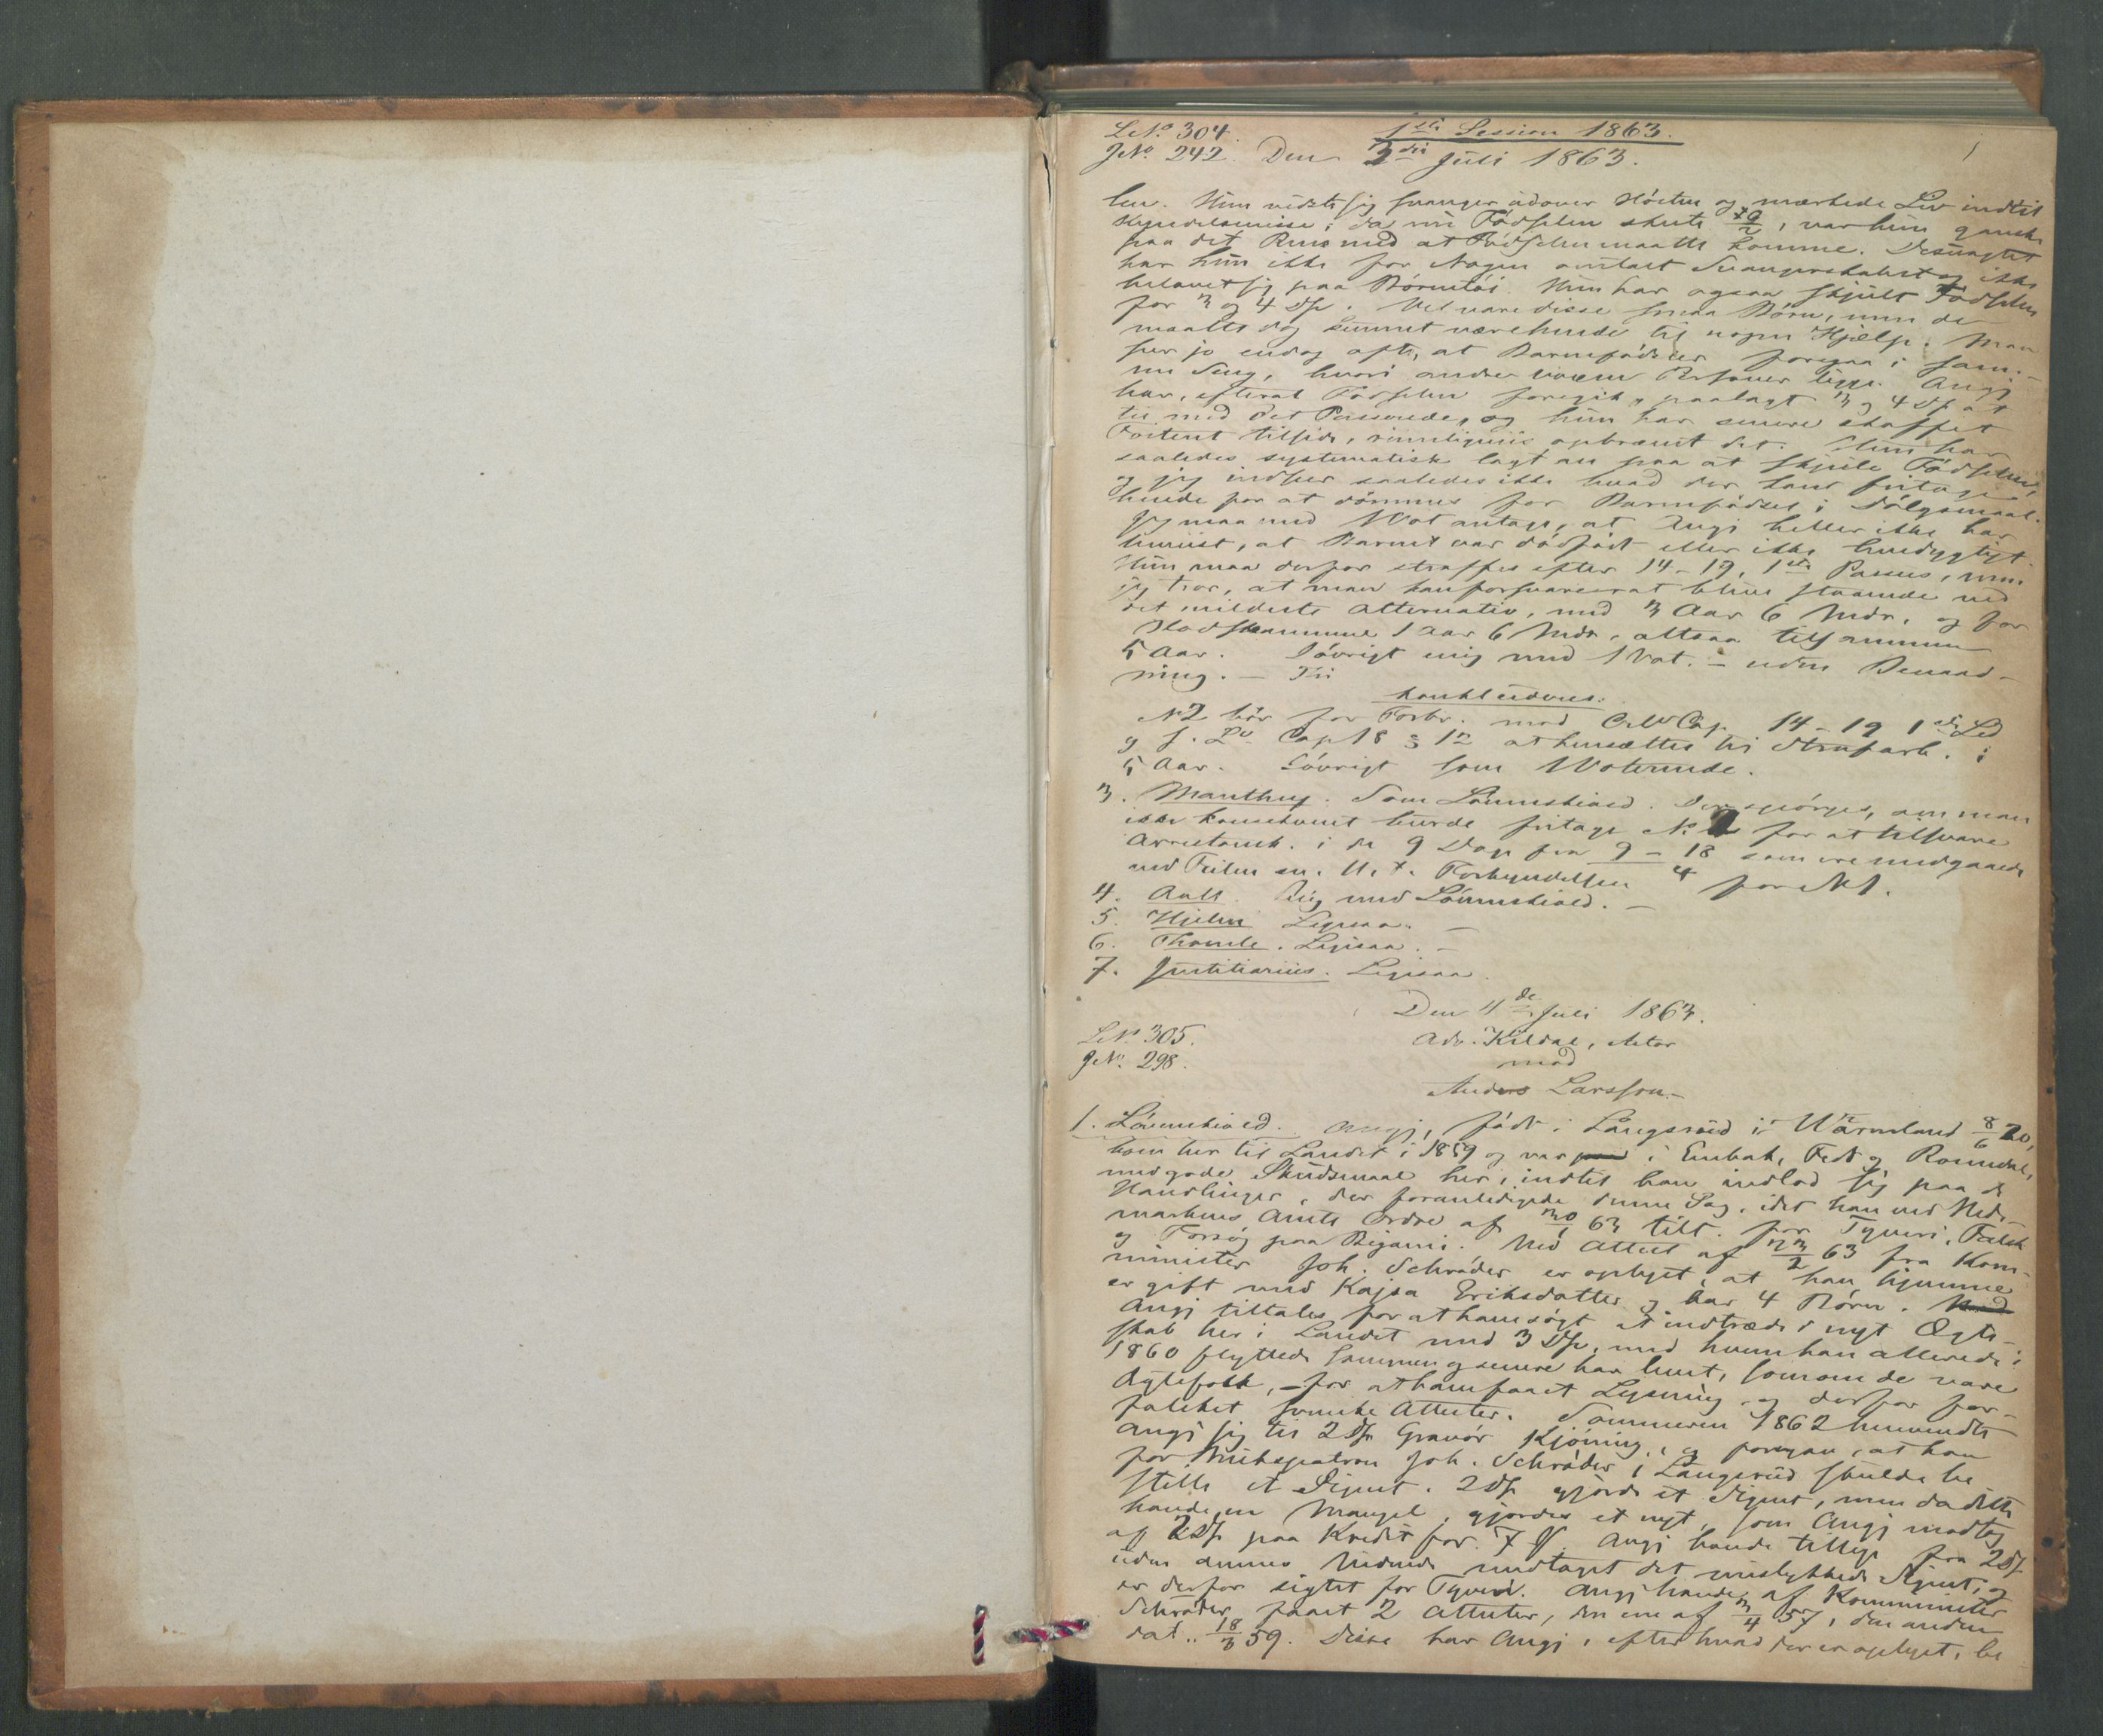 LNo. 304. 1ste Session 1863. 1
JNo. 242. Den 2den Juli 1863.
len. Hun vidste sig svanger udover Høsten og mærkede Liv indtil
da nu Fødselen skete var hun ganske
paa det Rene med at Fødselen maatte komme. Desuagtet
har hun ikke for Nogen omtalt Svangerskabet og ikke
belavet sig paa Børnetøi. Hun har ogsaa skjult Fødselen
for 3 og 4 Vdr. Vel vare disse smaa Børn, men de
maatte dog kunnet være hende til nogen Hjælp. Man
ser jo endog ofte, at Barnefødsler foregaa i sam-
me Seng, hvori andre voxne Personer ligge. Angj
har, efterat Fødselen foregik, paalagt 3 og 4 V at
tie med det Passerede, og hun har senere skaffet
Fosteret tilside, rimeligviis opbrændt det. Hun har
saaledes systematisk lagt an paa at skjule Fødselen,
og jeg indseer saaledes ikke hvad der kan fritage
hende for at dømmes for Barnefødsel i Dølgsmaal.
Jeg maa med 1Vot antage, at Angj heller ikke har
beviist, at Barnet var dødfødt eller ikke
Hun maa derfor straffes efter 14-19, 1ste Passus, men
jeg tror, at man kan forsvare at blive staaende ved
det mildeste Alternativ, med 3 Aar 6 Mdr, og for
1 aar 6 Mdr, altsaa tilsammen
5 Aar. Iøvrigt enig med 1Vot. - uden Benaad-
ning. - Til
konkluderes:
No2 bør for Forbr. mod Crl Cap. 14-19 1ste Led
og f. L. Cap 18 § 12 at hensættes til Strafarb. i
5 Aar. Iøvrigt som 1Voterende.
3. Manthey. Som Lövenskiold. Der spørges, om man
ikke burde fritage No for at tilsvare
Arrestomk. i de 9 Dage fra 9-18/4 som ere medgaaede
ved Feilen m. H. t. Forkyndelsen for No1.
4. Aall. Enig med Lövenskiold. -
5. Hjelm Ligesaa. -
6. Thomle. Ligesaa. -
7. Justitiarius. Ligesaa.
Den 4de Juli 1863.
LNo. 305. Adv. Kildal, Aktor
JNo. 298. mod
Anders Larsson. -
1. Lövenskiold. Angj, født i Långserud i Wärmland 8/6 20,
kom her til Landet i 1859 og var i Enebak, Fedt og Romedal,
med gode Skudsmaal her, indtil han indlod sig paa de
Handlinger, der foranledigede denne Sag, idet han ved Hede-
markens Amts Ordre af 30/1 63 tilt. for Tyveri, Falsk
og Forsøg paa Bigami. Ved Attest af 23/2 63 fra Kom-
minister Joh. Schröder er oplyst, at han hjemme
er gift med Kajsa Eriksdatter og har 4 Børn.
Angj tiltales for at have søgt at indtræde i nyt Ægte-
skab her i Landet med 3 V, med hvem han allerede i
1860 flyttede sammen og senere har levet, som om de vare
Ægtefolk, - for at have faaet Lysning, og derfor for-
falsket svenske Attester. Sommeren 1862 henvendte
Angj sig til 2 V Gravør Kjöning, og foregav, at han
for Brukspatron Joh. Schröder i Långserud skulde be
stille et Signet. 2 V gjorde et Signet, men da dette
havde en Mangel, gjordes et nyt, som Angj modtog
af 2 V paa Kredit for. Angj havde tillige fra 2 V
uden dennes Vidende medtaget det mislykkede Signet, og
er derfor sigtet for Tyveri. Angj havde af Komminister
Schröder faaet 2 Attester, den ene af 3/4 57, den anden
dat. 18/3 59. Disse har Angj, efter hvad der er oplyst, be